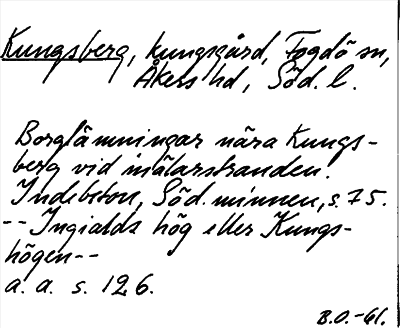 Kungsberg, kungsgård, Fogdö sn,
Åkers hd, Söd. l.
Borglämningar nära Kungs-
berg vid mälarstranden.
Indebetou, Söd. minnen, s. 75.
-- Ingialds hög eller Kungs-
högen --
a. a. s. 126.
B.O.-61.